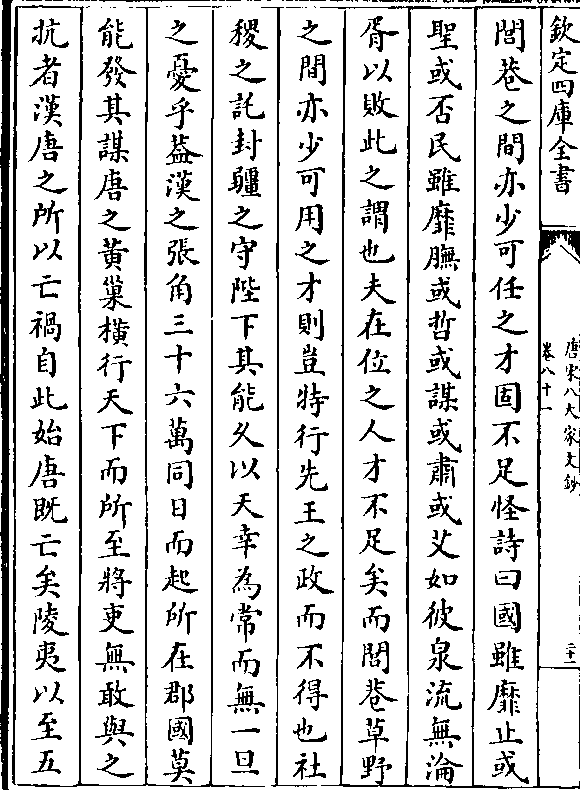 欽定四庫全書
唐宋八大家文鈔
卷八十一
二十一
閭巷之間亦少可任之才固不足怪詩曰國雖靡止或
聖或否民雖靡膴或哲或謀或肅或艾如彼泉流無淪
胥以敗此之謂也夫在位之人才不足矣而閭巷草野
之間亦少可用之才則豈特行先王之政而不得也社
稷之託封疆之守陛下其能久以天幸為常而無一旦
之憂乎葢漢之張角三十六萬同日而起所在郡國莫
能發其謀唐之黃巢橫行天下而所至將吏無敢與之
抗者漢唐之所以亡禍自此始唐既亡矣陵夷以至五